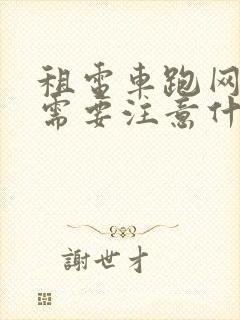 租電車跑网
需要注意什
謝世才